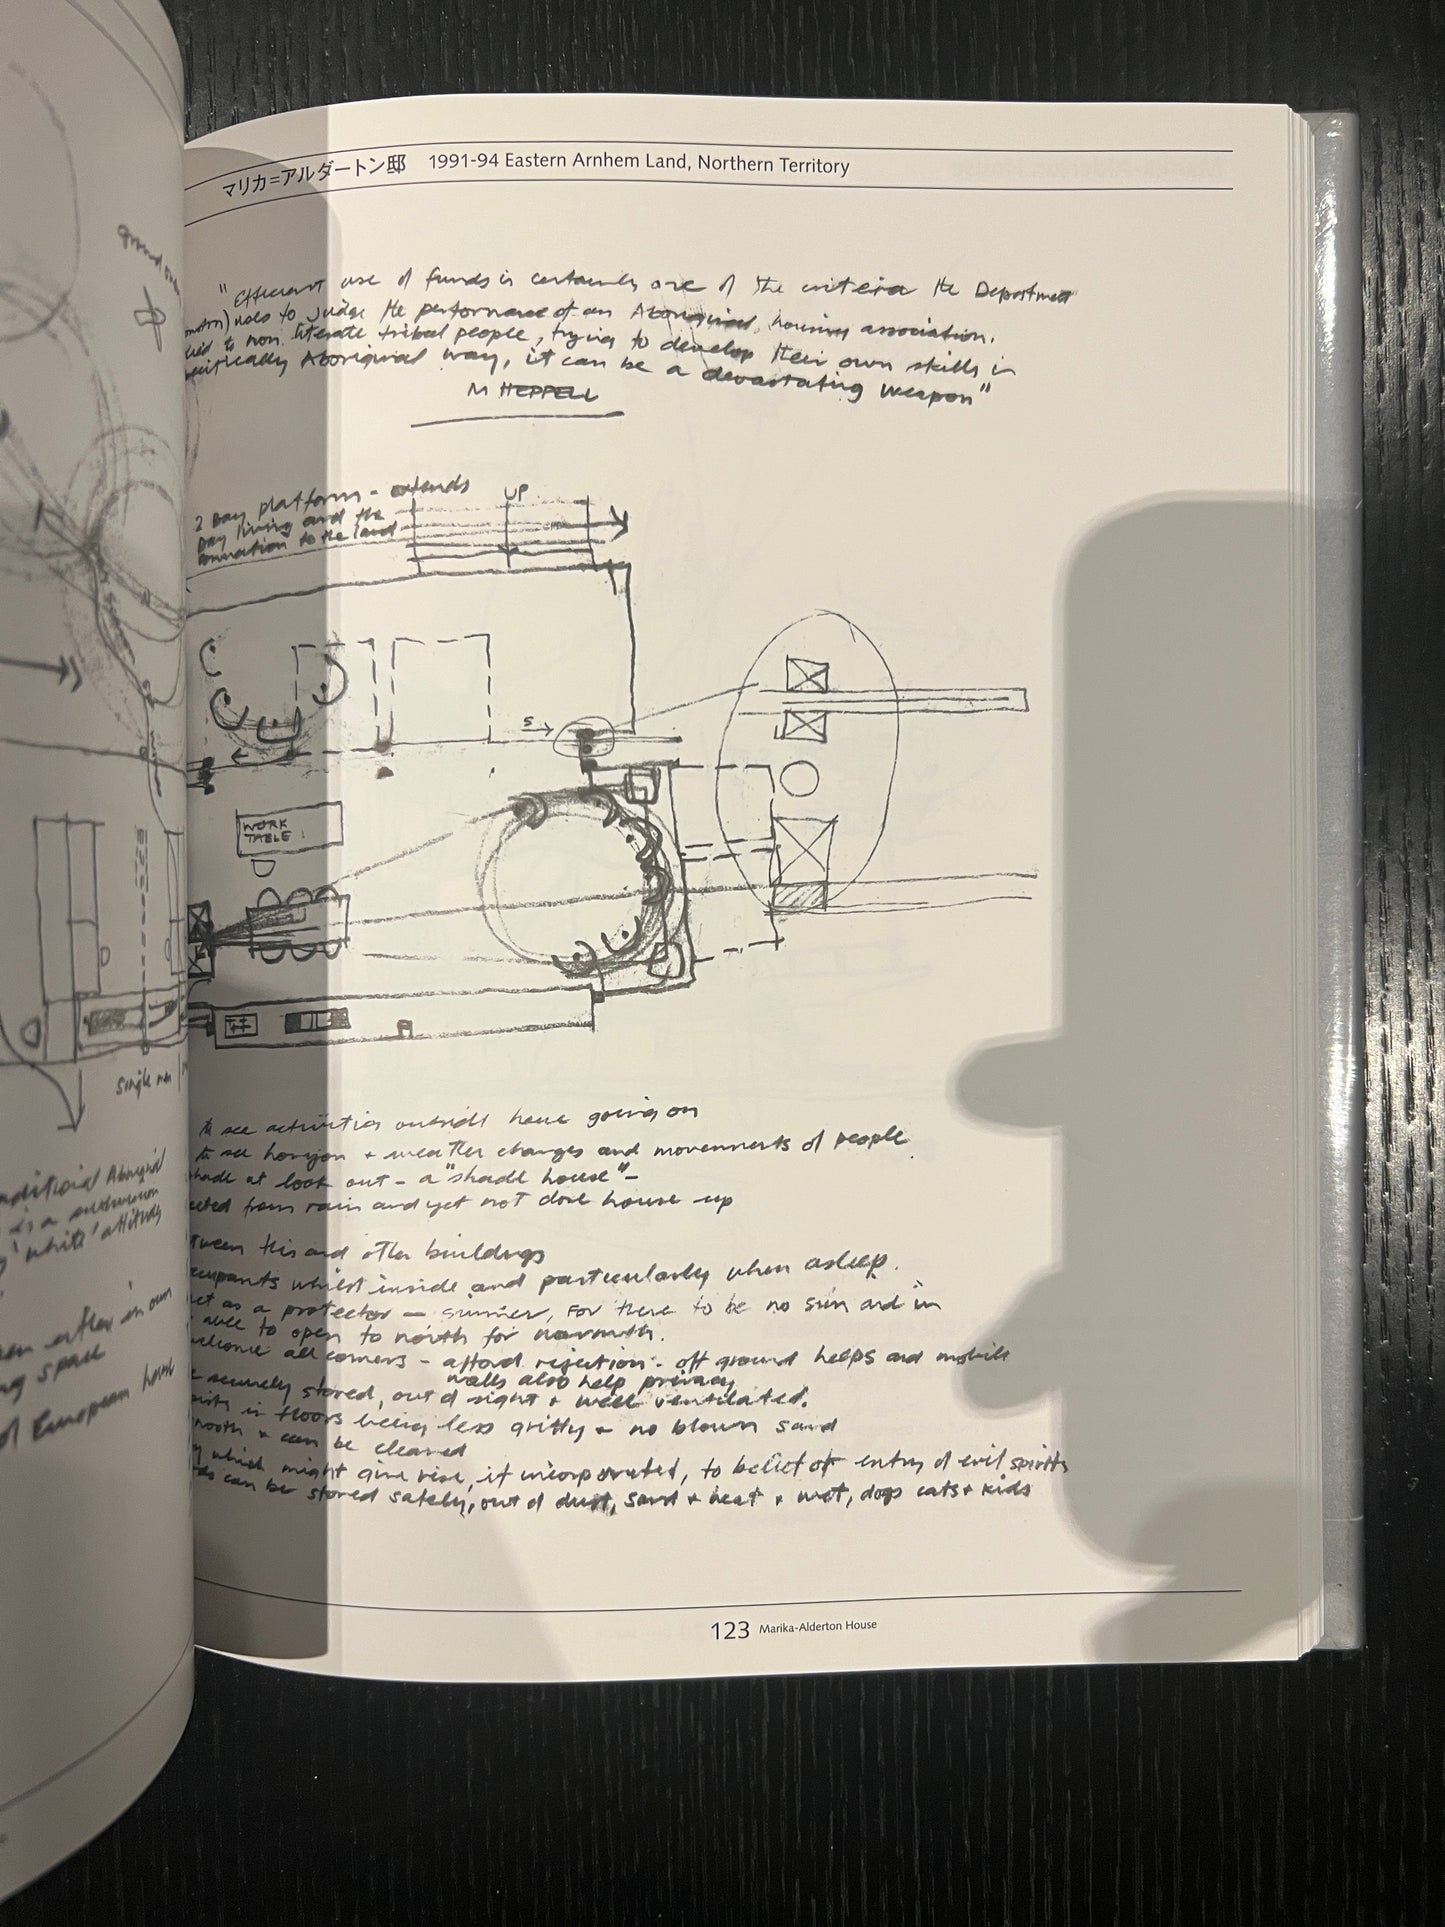 マリカ=アルダートン邸 1991-94 Eastern Arnhem Land, Northern Territory
"Efficient use of funds is certainly one of the criteria the Department
uses to judge the performance of an Aboriginal housing association.
to non literate tribal people, trying to develop their own skills in
Aboriginal way, it can be a devastating weapon"
M HEPPELL
platform - extends
living and the
connection to the land
UP
S
WORK
TABLE
single
to see activities outside have going on
to see horizon + weather changes and movements of people
shade at look out - a "shade house" -
from rain and yet not close house up
this and other buildings
occupants whilst inside and particularly when asleep.
as a protector - summer, for there to be no sun and in
able to open to north for warmth.
all comers - afford rejection - off ground helps and mobile
walls also help privacy
securely stored, out of sight + well ventilated.
in floors being less gritty + no blown sand
+ can be cleaned
which might give rise, if incorporated, to belief of entry of evil spirits
can be stored safely, out of dust, sand + heat + wet, dogs cats + kids
Aboriginal
is a
'white' attitude
in our
space
of European
123 Marika-Alderton House